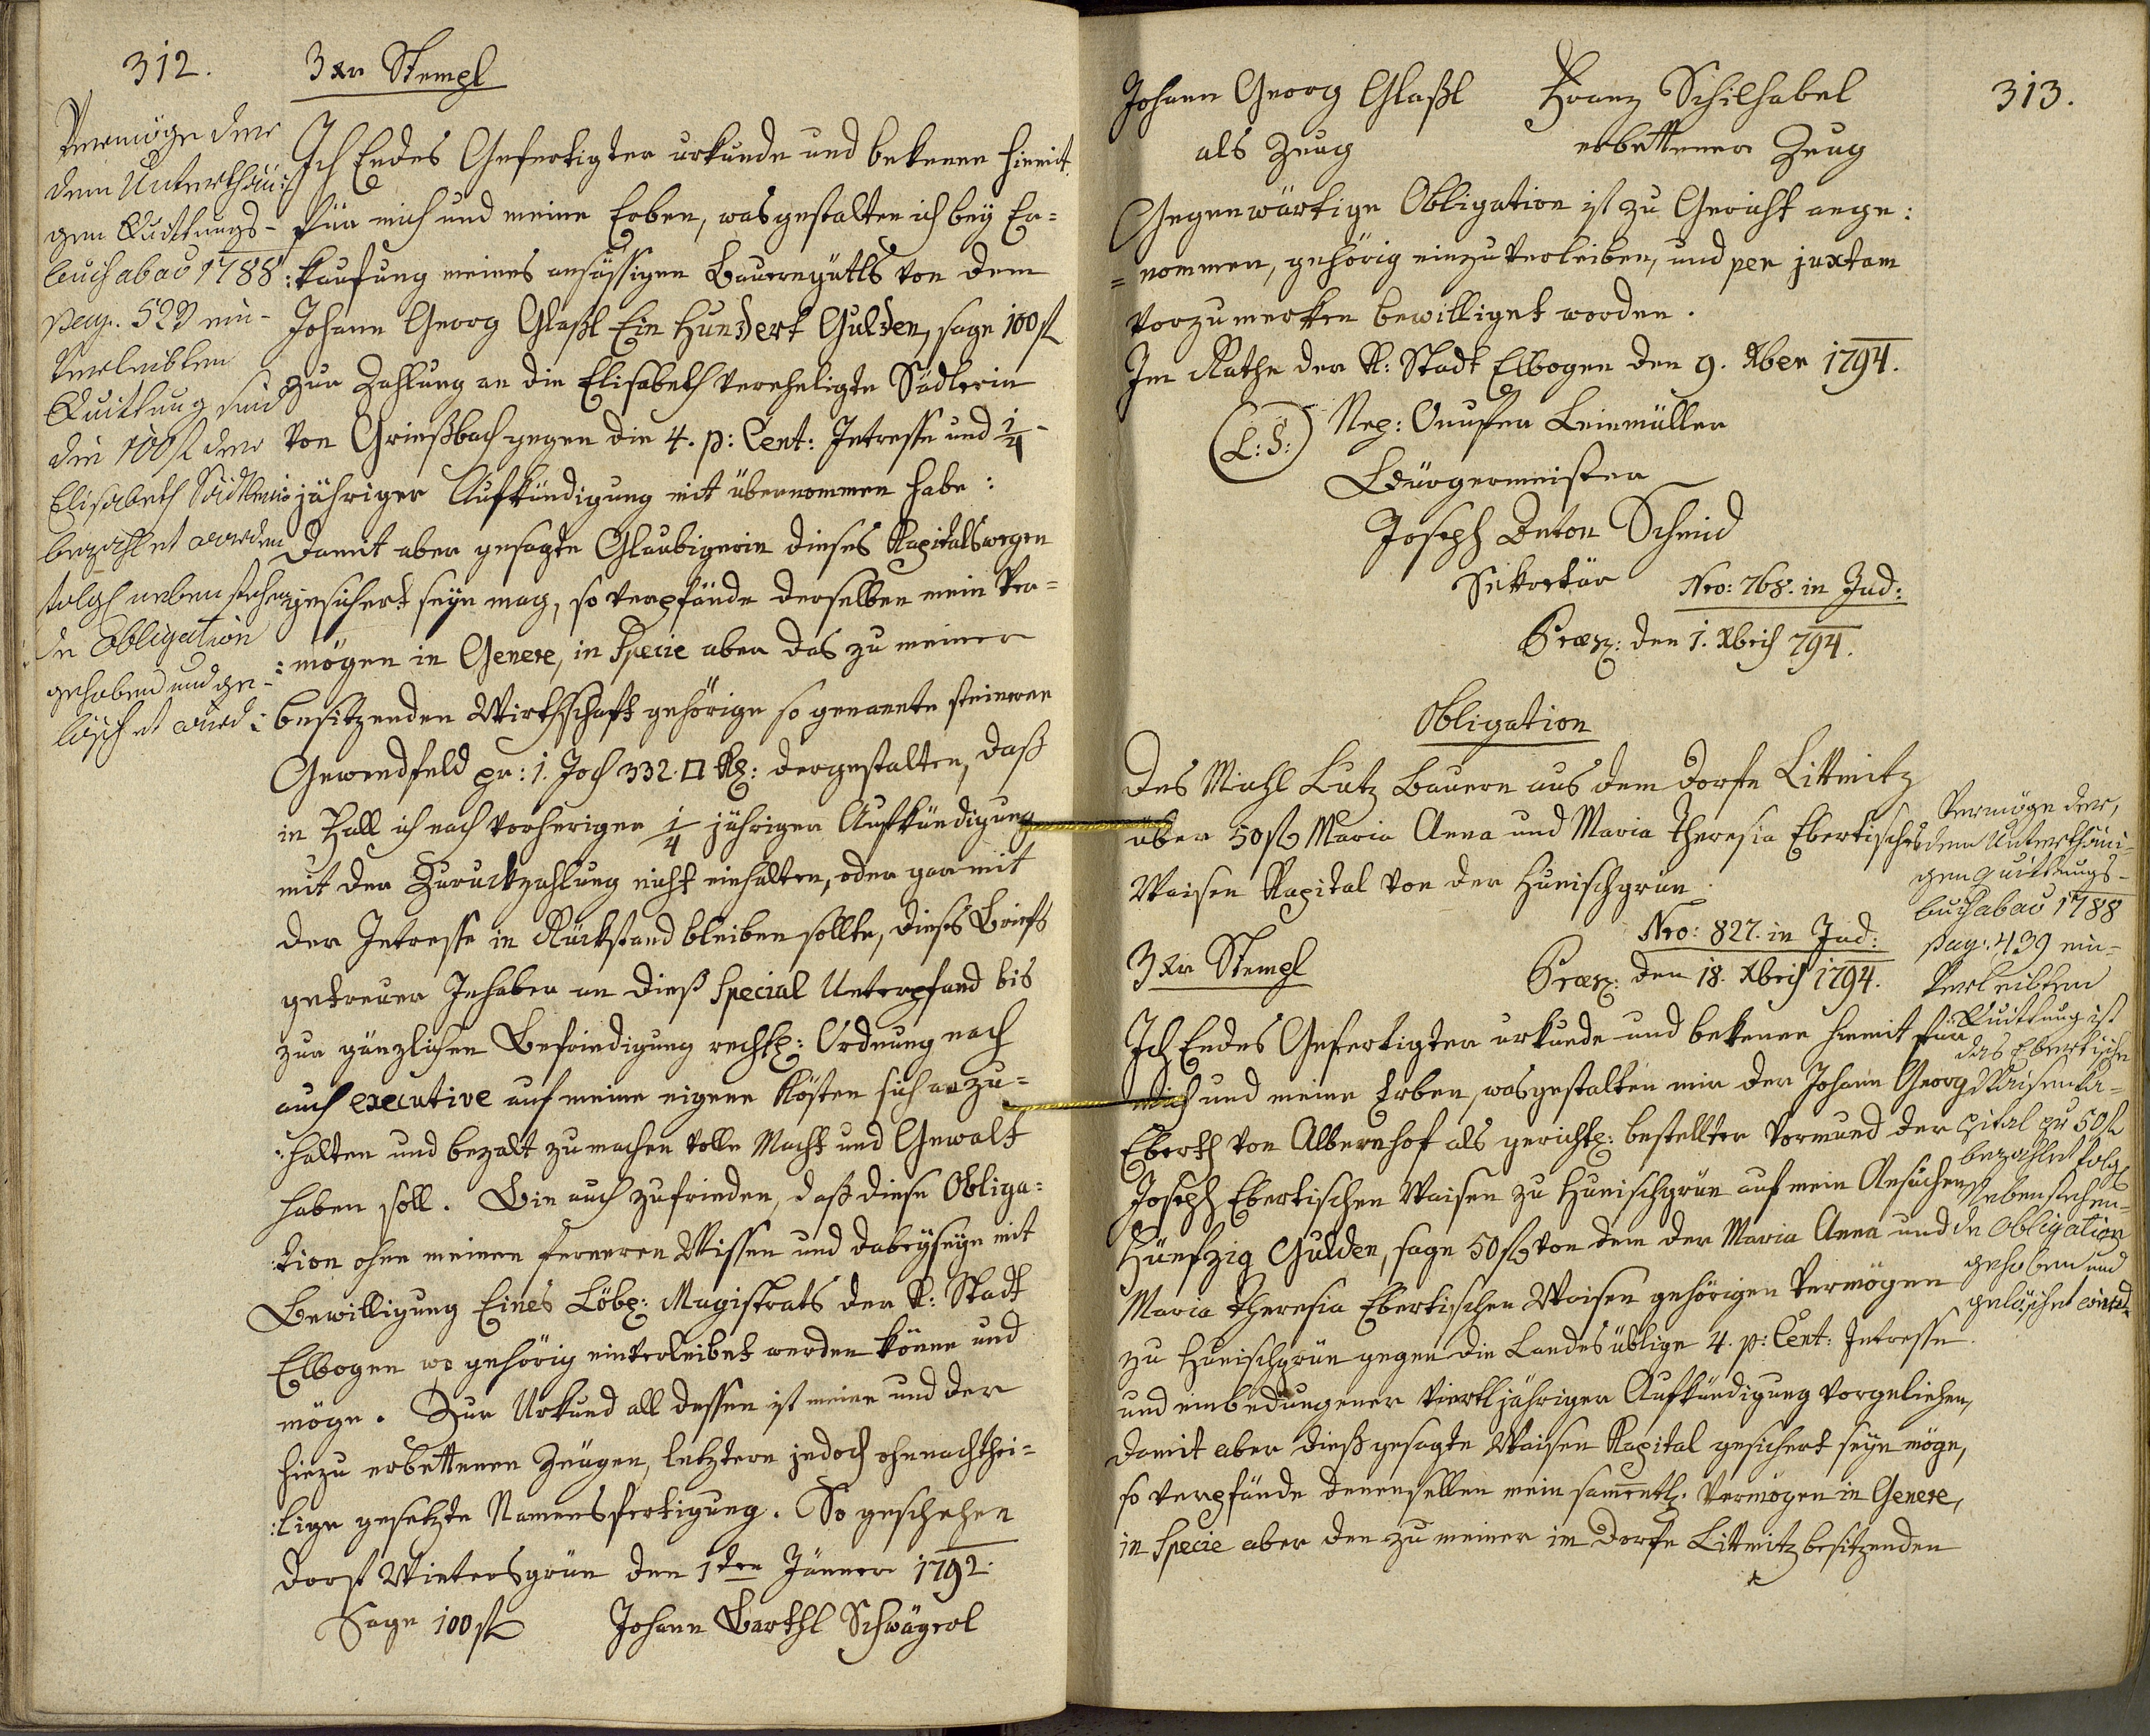 312.
3 xr Stempl
Vermöge der
dem Unterthäni
gen Quittungs-
buch ab ao 1788
pag. 529 ein-
verleibten
Quittung sind
die 100 fl der
Elisabeth Sädlerin
bezahlet worden
folgl nebenstehen
de Obligation
gehoben und ge-
löschet wird:
Ich Endes Gefertigter urkunde und bekenne hiemit
für mich und meine Erben, was gestalten ich bey Er=
:kaufung meines ansässigen Bauerngütls von dem
Johann Georg Glaßl Ein Hundert Gulden, sage 100 fl
zur Zahlung an die Elisabeth verehligte Sädlerin
von Grießbach gegen die 4. p: Cent: Intresse und 1/4
jähriger Aufkündigung mit übernommen habe:
Damit aber gesagte Glaubigerin dieses Kapitalswegen
gesichert seyn mag, so verpfände derselben mein Ver=
:mögen in Genere, in Specie aber das zu meiner
besitzenden Wirthschaft gehörige so genannte steinerne
Gewendfeld pr: 1. Joch 332. □ Kl: dergestalten, daß
in Fall ich nach vorheriger 1/4 jähriger Aufkündigung
mit der Zuruckzahlung nicht einhalten, oder gar mit
der Intresse in Rückstand bleiben sollte, dieses Briefs
getreuer Inhaber an dieß Special Unterpfand bis
zur gänzlichen Befriedigung rechtl: Ordnung nach
auch executive auf meine eigene Kösten sich anzu=
:halten und bezalt zu machen volle Macht und Gewalt
haben soll. Bin auch zufrieden, daß diese Obliga:
:tion ohne meinen ferneren Wissen und dabeyseyn mit
Bewilligung Eines Löbl: Magistrats der K: Stadt
Elbogen wo gehörig einverleibet werden könne und
möge. Zur Urkund all dessen ist meine und der
hiezu erbettenen Zeugen, letztern jedoch ohnnachthei=
:lige gesetzte Namensfertigung. So geschehen
Dorf Wintersgrün den 1ten Jänner 1792.
Sage 100 fl Johann Barthl Schwägerl
313.
Johann Georg Glaßl Franz Schilhabel
als Zeug erbettener Zeug
Gegenwärtige Obligation ist zu Gericht ange:
=nommen, gehörig einzuverleiben, und per juxtam
vorzumerken bewilliget worden.
Im Rathe der K: Stadt Elbogen den 9. Xber 1794.
(L:S:) Nep: Onufer Leinmüller
Bürgermeister
Joseph Anton Schmid
Sekretär Nro: 768. in Jud:
Præs: den 1. Xbris 794.
Obligation
Des Michl Lutz Bauern aus dem Dorfe Littmitz
über 50 fl Maria Anna und Maria Theresia Ebertisches
Waisen Kapital von der Hunischgrün.
Nro: 827. in Jud:
3 xr Stempl Præs: den 18. Xbris 1794.
Vermöge der,
dem Unterthäni
gen Quittungs-
buch ab ao 1788
pag: 439 ein-
verleibten
Quittung ist
das Ebertische
Waisen Ka-
pital pr 50 fl
bezahlet folgl
Nebenstehen-
de Obligation
gehoben und
gelöschet wird
Ich Endes Gefertigter urkunde und bekenne hiemit für
mich und meine Erben, was gestalten mir der Johann Georg
Eberth von Albernhof als gerichtl: bestellter Vormund der
Joseph Ebertischen Waisen zu Hunischgrün auf mein Ansuchen
Fünfzig Gulden, sage 50 fl von dem der Maria Anna und
Maria Theresia Ebertischen Waisen gehörigen Vermögen
zu Hunischgrün gegen die Landes üblige 4. p: Cent: Intresse
und einbedungener viertljähriger Aufkündigung vorgeliehen,
damit aber dieß gesagte Waisen Kapital gesichert seyn möge,
so verpfände denenselben mein sammentl: Vermögen in Genere,
in Specie aber den zu meiner im Dorfe Littmitz besitzenden